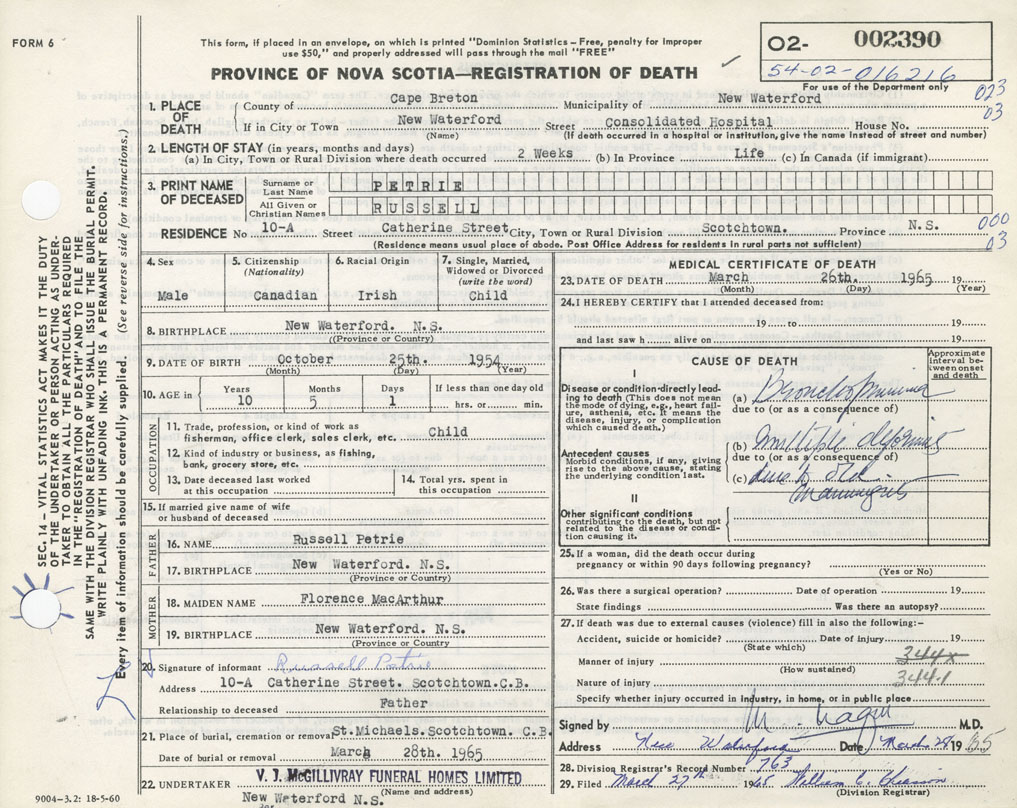 FORM 6
This form, if placed in an envelope, on which is printed "Dominion Statistics – Free, penalty for improper
use $50," and properly addressed will pass through the mail "FREE"
PROVINCE OF NOVA SCOTIA—REGISTRATION OF DEATH
02- 002390
54-02-016216
For use of the Department only
023
03
1. PLACE OF DEATH
County of Cape Breton Municipality of New Waterford
If in City or Town New Waterford Street Consolidated Hospital House No.
(Name) (If death occurred in a hospital or institution, give the name instead of street and number)
2. LENGTH OF STAY (in years, months and days)
(a) In City, Town or Rural Division where death occurred 2 Weeks (b) In Province Life (c) In Canada (if immigrant)
3. PRINT NAME OF DECEASED
Surname or Last Name PETRIE
All Given or Christian Names RUSSELL
RESIDENCE No 10-A Street Catherine Street City, Town or Rural Division Scotchtown. Province N.S.
(Residence means usual place of abode. Post Office Address for residents in rural parts not sufficient)
000
03
4. Sex
Male
5. Citizenship
(Nationality)
Canadian
6. Racial Origin
Irish
7. Single, Married,
Widowed or Divorced
(write the word)
Child
8. BIRTHPLACE New Waterford. N.S.
((Province or Country)
9. DATE OF BIRTH October 25th. 1954
(Month) (Day) (Year)
10. AGE in Years 10 Months 5 Days 1 If less than one day old
hrs. or min.
OCCUPATION
11. Trade, profession, or kind of work as
fisherman, office clerk, sales clerk, etc. Child
12. Kind of industry or business, as fishing,
bank, grocery store, etc.
13. Date deceased last worked
at this occupation
14. Total yrs. spent in
this occupation
15. If married give name of wife
or husband of deceased
FATHER
16. NAME Russell Petrie
17. BIRTHPLACE New Waterford. N.S.
(Province or Country)
MOTHER
18. MAIDEN NAME Florence MacArthur
19. BIRTHPLACE New Waterford. N.S.
(Province or Country)
20. Signature of informant Russell Petrie
Address 10-A Catherine Street. Scotchtown.C.B.
Relationship to deceased Father
21. Place of burial, cremation or removal St.Michaels.Scotchtown. C.B.
Date of burial or removal March 28th. 1965
22. UNDERTAKER V. J. McGILLIVRAY FUNERAL HOMES LIMITED
(Name and address)
New Waterford N.S.
MEDICAL CERTIFICATE OF DEATH
23. DATE OF DEATH March 26th. 1965 19
(Month) (Day) (Year)
24. I HEREBY CERTIFY that I attended deceased from:
19 to 19
and last saw h alive on 19
CAUSE OF DEATH
Approximate
interval be-
tween onset
and death
I
Disease or condition directly lead-
ing to death (This does not mean
the mode of dying, e.g., heart failure,
asthenia, etc. It means the
disease, injury, or complication
which caused death.)
(a) Bronchopneumonia
due to (or as a consequence of)
Antecedent causes
Morbid conditions, if any, giving
rise to the above cause, stating
the underlying condition last.
(b) Multiple deformities
due to (or as a consequence of)
(c) due to old
II
Other significant conditions
contributing to the death, but not
related to the disease or condi-
tion causing it.
25. If a woman, did the death occur during
pregnancy or within 90 days following pregnancy?
(Yes or No)
26. Was there a surgical operation? Date of operation 19
State findings Was there an autopsy?
27. If death was due to external causes (violence) fill in also the following:-
Accident, suicide or homicide? Date of injury 19
(State which)
Manner of injury 344x
(How sustained)
Nature of injury 344.1
Specify whether injury occurred in industry, in home, or in public place
Signed by M.D.
Address New Waterford Date March 28 1965
28. Division Registrar's Record Number 763
29. Filed March 27th 1965 William C.
(Division Registrar)
SEC. 14 – VITAL STATISTICS ACT MAKES IT THE DUTY
OF THE UNDERTAKER OR PERSON ACTING AS UNDER-
TAKER TO OBTAIN ALL THE PARTICULARS REQUIRED
IN THE "REGISTRATION OF DEATH" AND TO FILE THE
SAME WITH THE DIVISION REGISTRAR WHO SHALL ISSUE THE BURIAL PERMIT.
WRITE PLAINLY WITH UNFADING INK. THIS IS A PERMANENT RECORD.
Every item of information should be carefully supplied. (See reverse side for instructions.)
9004-3.2: 18-5-60